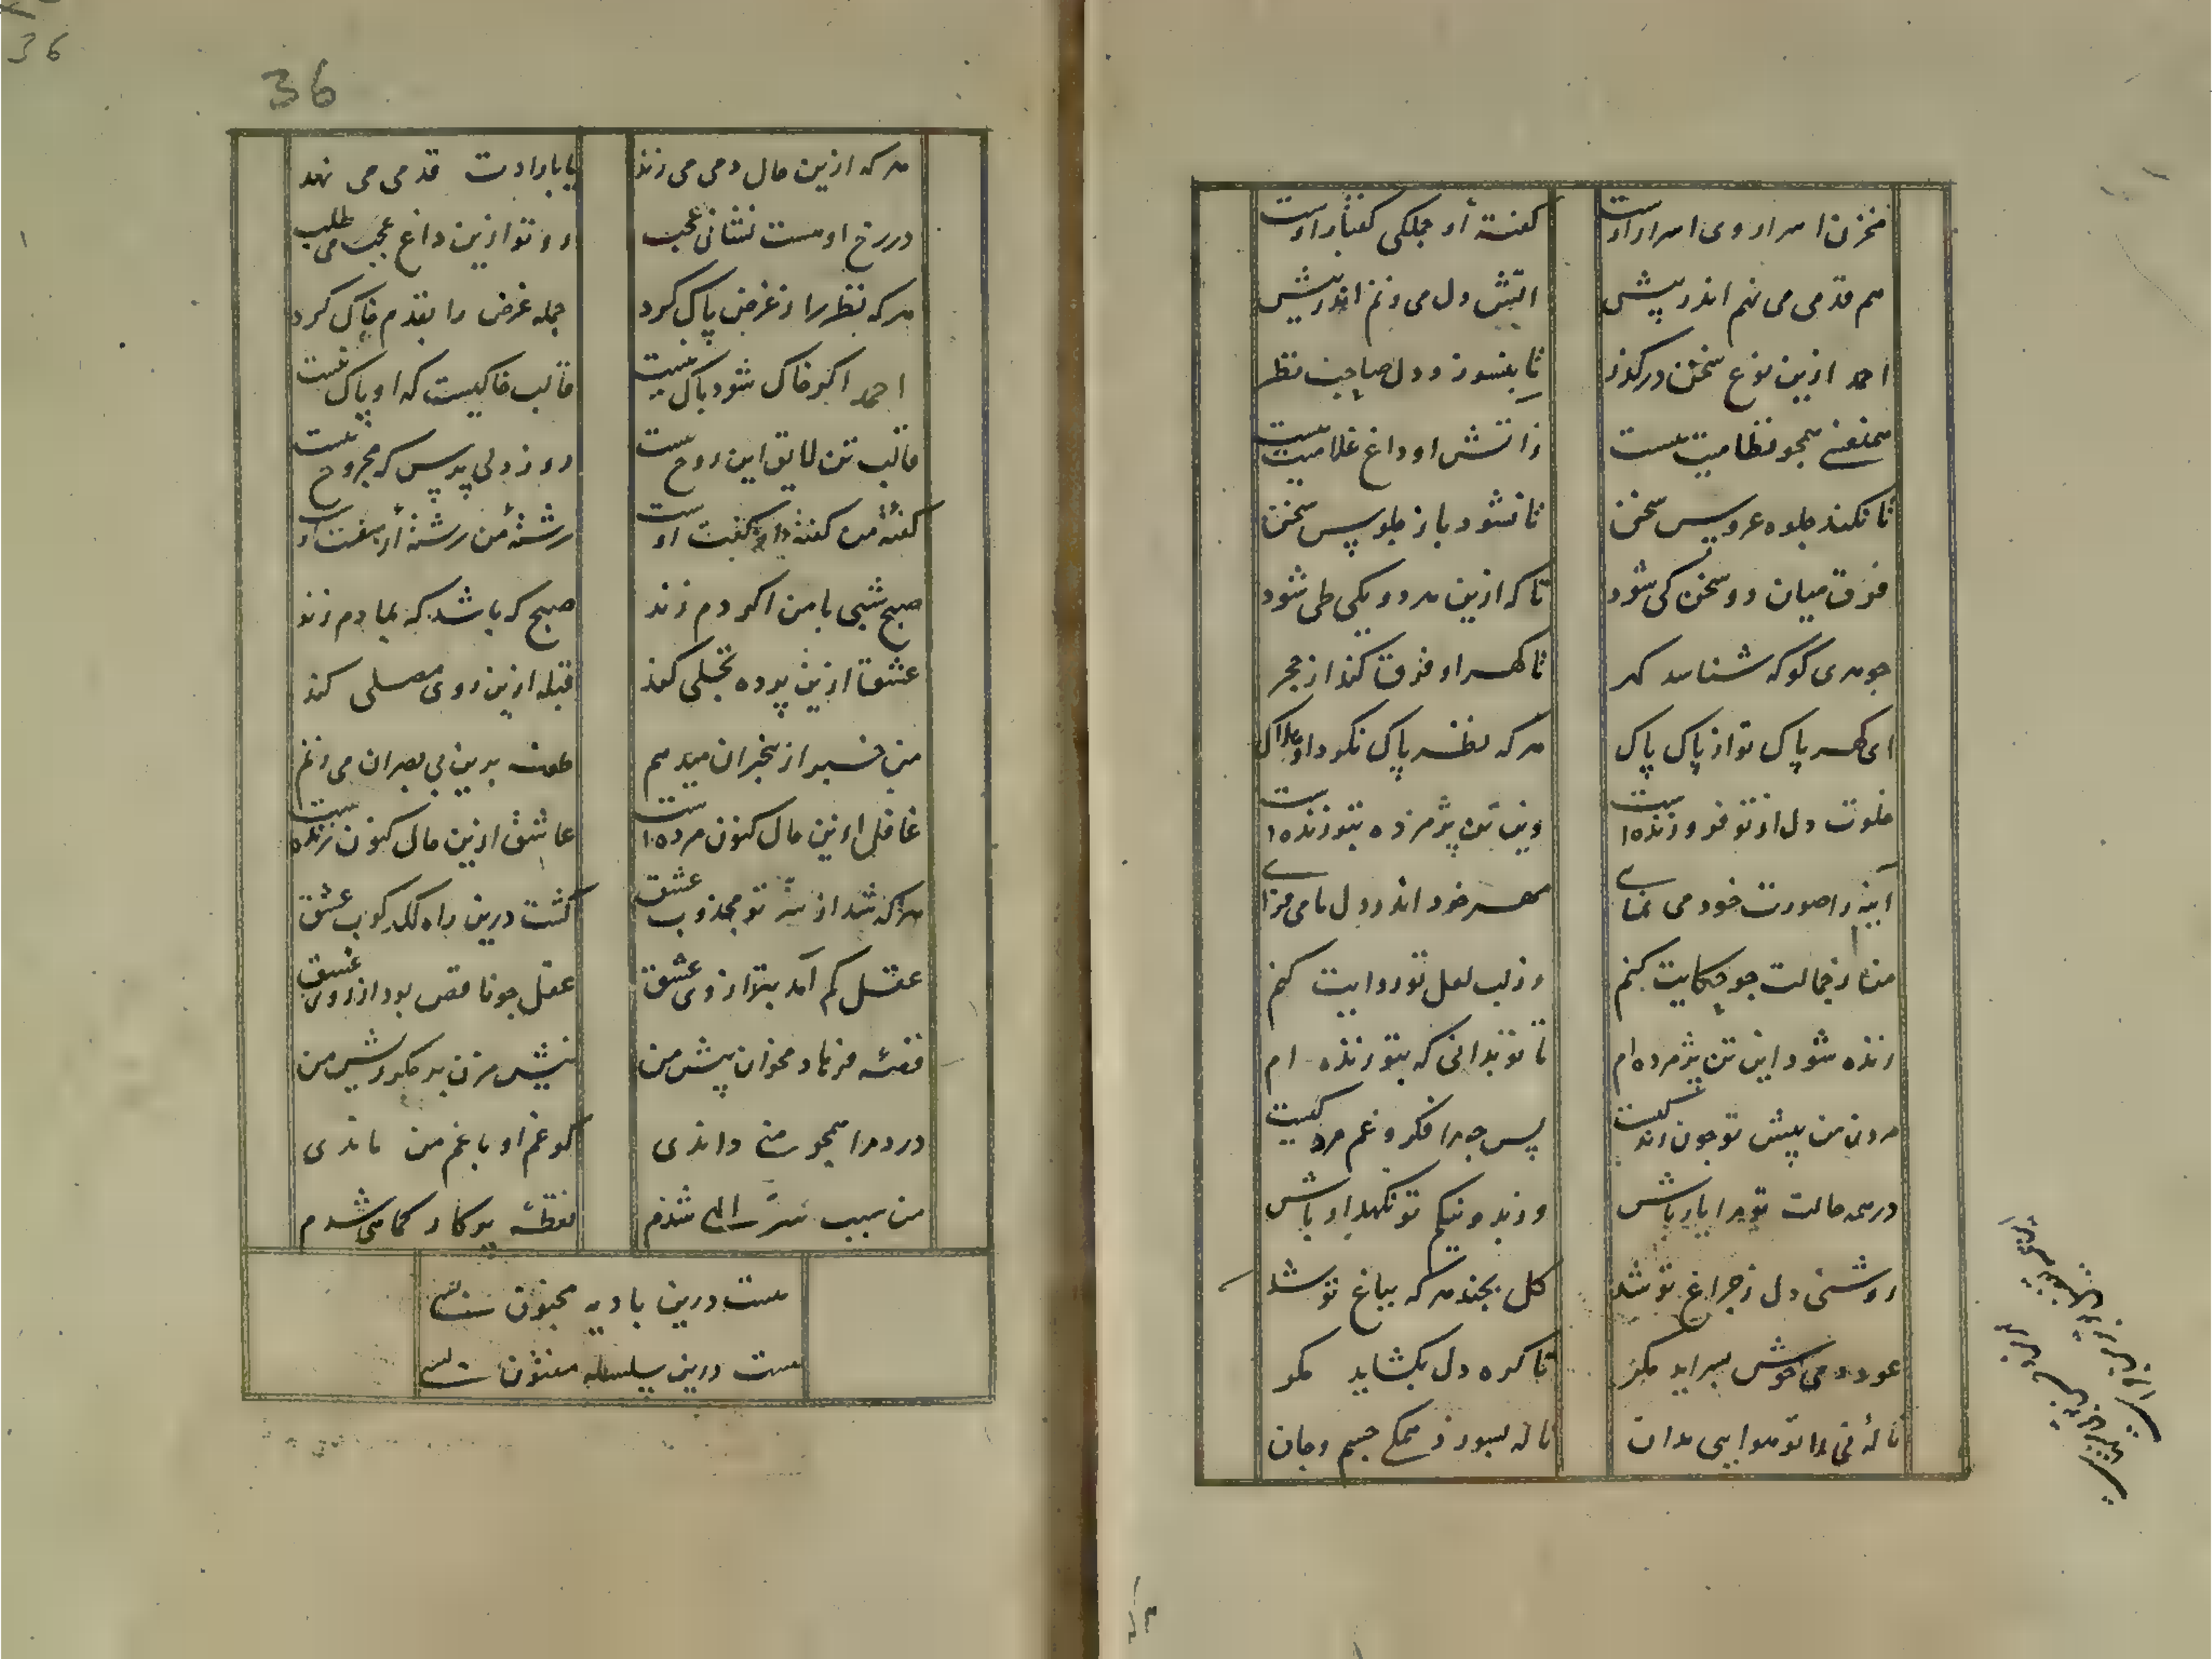 مخزن اسرار وی اسرار اوست
گفتهٔ او جملگی گفتار اوست
هم قدمی می نهم اندر پیش
اتش دل می زنم اندر پیش
احمد ازین نوع سخن درگذر
تا بنسوزد دل صاحب نظر
همنفسی همچو نظامیت هست
ز اتش او داغ غلامیت هست
تا نکند جلوه عروس سخن
تا نشود باز جلوس سخن
فرق میان دو سخن کی شود
تا که ازین هر دو یکی طی شود
جوهری کو که شناسد کهر
تا کهر او فرق کند از حجر
ای کهر پاک تو از پاک پاک
هر که نظر پاک نکرد او هلاک
خلوت دل از تو فروزنده است
وین تن پژمرده بتو زنده است
آینه را صورت خود می نمای
مهر خود اندر دل ما می فزای
من ز جمالت چو حکایت کنم
وز لب لعل تو روایت کنم
زنده شود این تن پژمرده ام
تا تو بدانی که بتو زنده ام
مردن من پیش تو چون زندکیست
پس چه مرا فکر و غم مردکیست
در همه حالت تو مرا یار باش
وز بد و نیکم تو نکهدار باش
روشنی دل ز چراغ تو شد
کل بچند هر که بباغ تو شد
عود دمی خوش بسراید مکر
تا کره دل بکشاید مکر
نالهٔ نی را تو هوایی بدان
تا نه بسوزد همکی جسم و جان
36
36
هر که ازین حال دمی می زند
یا بارادت قدمی می نهد
در رخ او هست نشانی عجب
رو تو ازین داغ عجب می طلب
هر که نظر را ز غرض پاک کرد
جمله غرض را بقدم خاک کرد
احمد اکر خاک شود باک نیست
قالب خاکیست که او پاک نیست
قالب تن لایق این روح نیست
روز دلی پرس که مجروح نیست
کفتهٔ من کفتهٔ کفت اوست
رشتهٔ من رشتهٔ او سفت اوست
صبح شبی با من اکر دم زند
صبح که باشد که بما دم زند
عشق ازین پرده تجلی کند
قبله ازین روی مصلی کند
من خبر از بیخبران میدهم
طعنه برین بی بصران می زنم
غافل ازین حال کنون مرده است
عاشق ازین حال کنون زنده است
هر که شد از سر تو مجذوب عشق
کشت درین راه لکدکوب عشق
عقل کم آمد بترازوی عشق
عقل چو ناقص بود از روی عشق
قصهٔ فرهاد مخوان پیش من
نیش مزن بر جکر ریش من
درد مرا همچو منی داندی
کو غم او با غم من ماندی
من سبب سرّ الهی شدم
نقطهٔ پرکار کماهی شدم
هست درین بادیه مجنون بسی
هست درین سلسله مفتون بسی